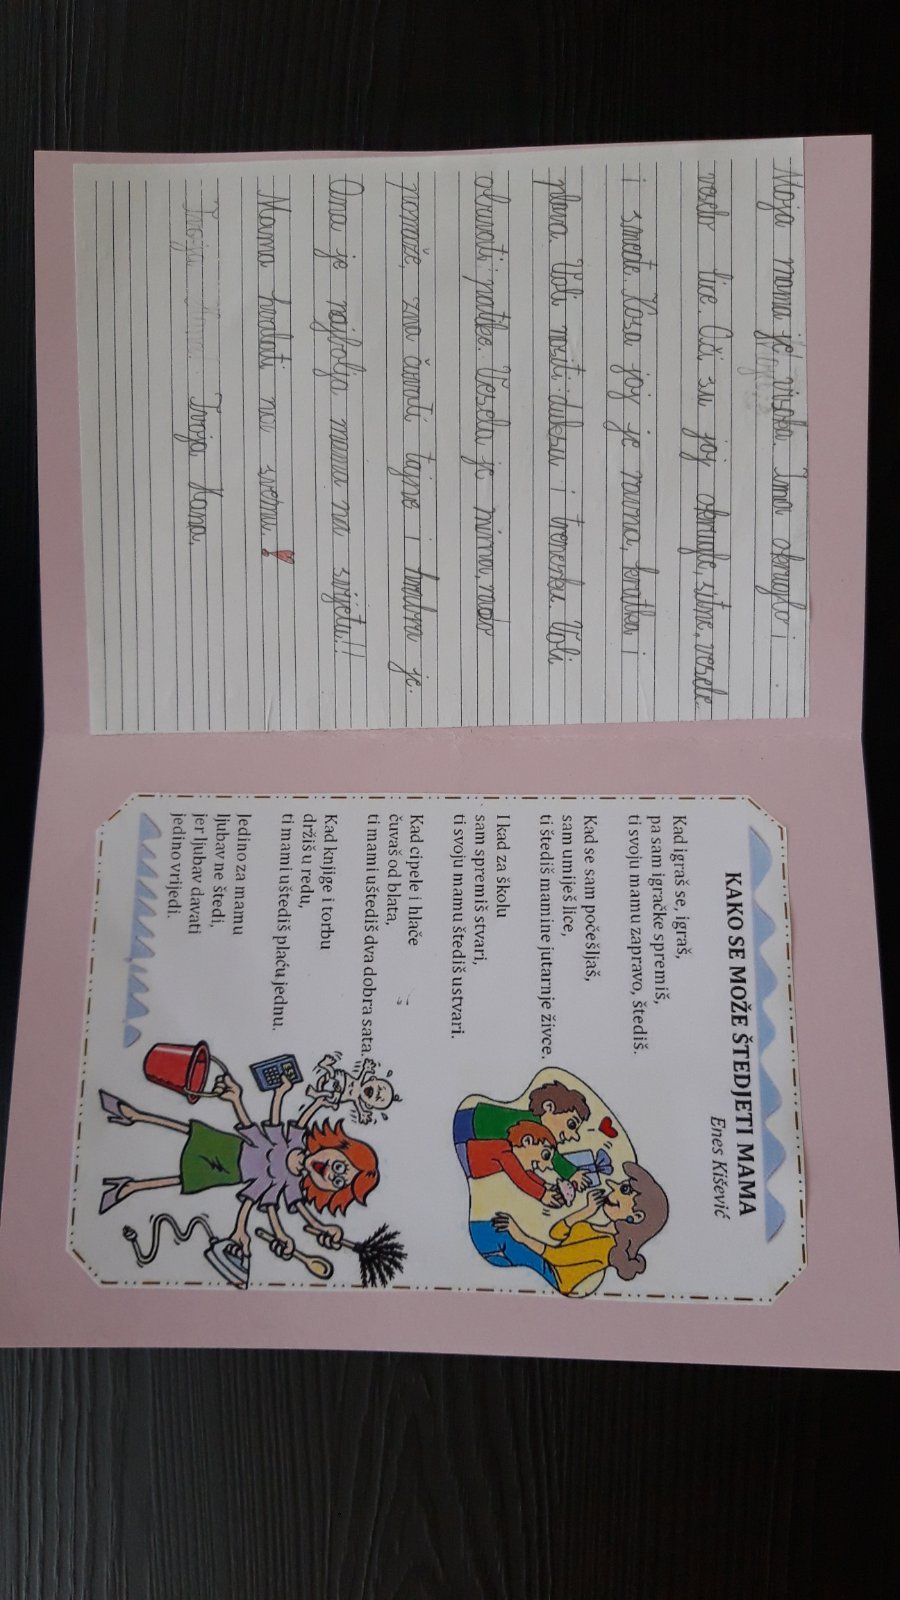 Moja mama je visoka. Ima okruglo i
veselo lice. Oči su joj okrugle, sitne, vesele
i smeđe. Kosa joj je ravna, kratka i
plava. Voli nositi duksu i trenerku. Voli
obuvati patike. Vesela je, mirna, rado
pomaže, zna čuvati tajne i hrabra je.
Ona je najbolja mama na svijetu!!
Mama hvalati na svemu.
Tvoja Hana.
KAKO SE MOŽE ŠTEDJETI MAMA
Enes Kišević
Kad igraš se, igraš,
pa sam igračke spremiš,
ti svoju mamu zapravo, štediš.
Kad se sam počešljaš,
sam umiješ lice,
ti štediš mamine jutarnje živce.
I kad za školu
sam spremiš stvari,
ti svoju mamu štediš ustvari.
Kad cipele i hlače
čuvaš od blata,
ti mami uštediš dva dobra sata.
Kad knjige i torbu
držiš u redu,
ti mami uštediš plaću jednu.
Jedino za mamu
ljubav ne štedi,
jer ljubav davati
jedino vrijedi.